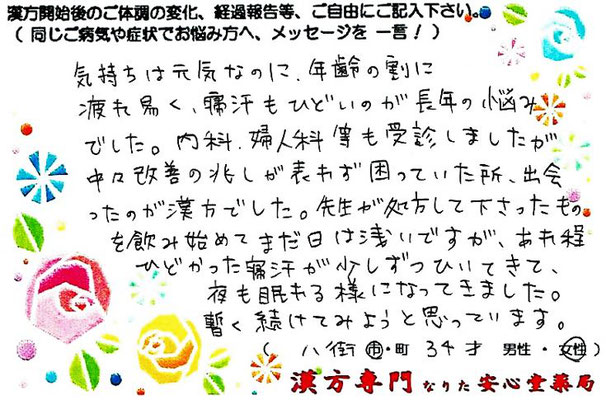 漢方開始後のご体調の変化、経過報告等、ご自由にご記入下さい。
（ 同じご病気や症状でお悩み方へ、メッセージを 一言！）
気持ちは元気なのに、年齢の割に
疲れ易く、寝汗もひどいのが長年の悩み
でした。内科、婦人科等も受診しましたが
中々改善の兆しが表れず困っていた所、出会
ったのが漢方でした。先生が処方して下さったもの
を飲み始めてまだ日は浅いですが、あれ程
ひどかった寝汗が少しずつひいてきて、
夜も眠れる様になってきました。
暫く続けてみようと思っています。
（ 八街 市・町 34才 男性・女性）
漢方専門 なりた 安心堂薬局